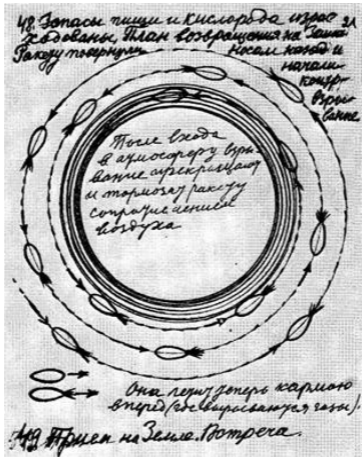 48. Запасы пищи и кислорода израс-
ходованы. План возвращения на Землю
Ракету повернули носом назад и
начали
контр-
взры-
вание
После входа
в атмосферу взры-
вание прекращают
и тормозят ракету
сопротивлением
воздуха
Она летит теперь кормою
вперед (где вырываются газы).
49. Прием на Земле. Встреча.